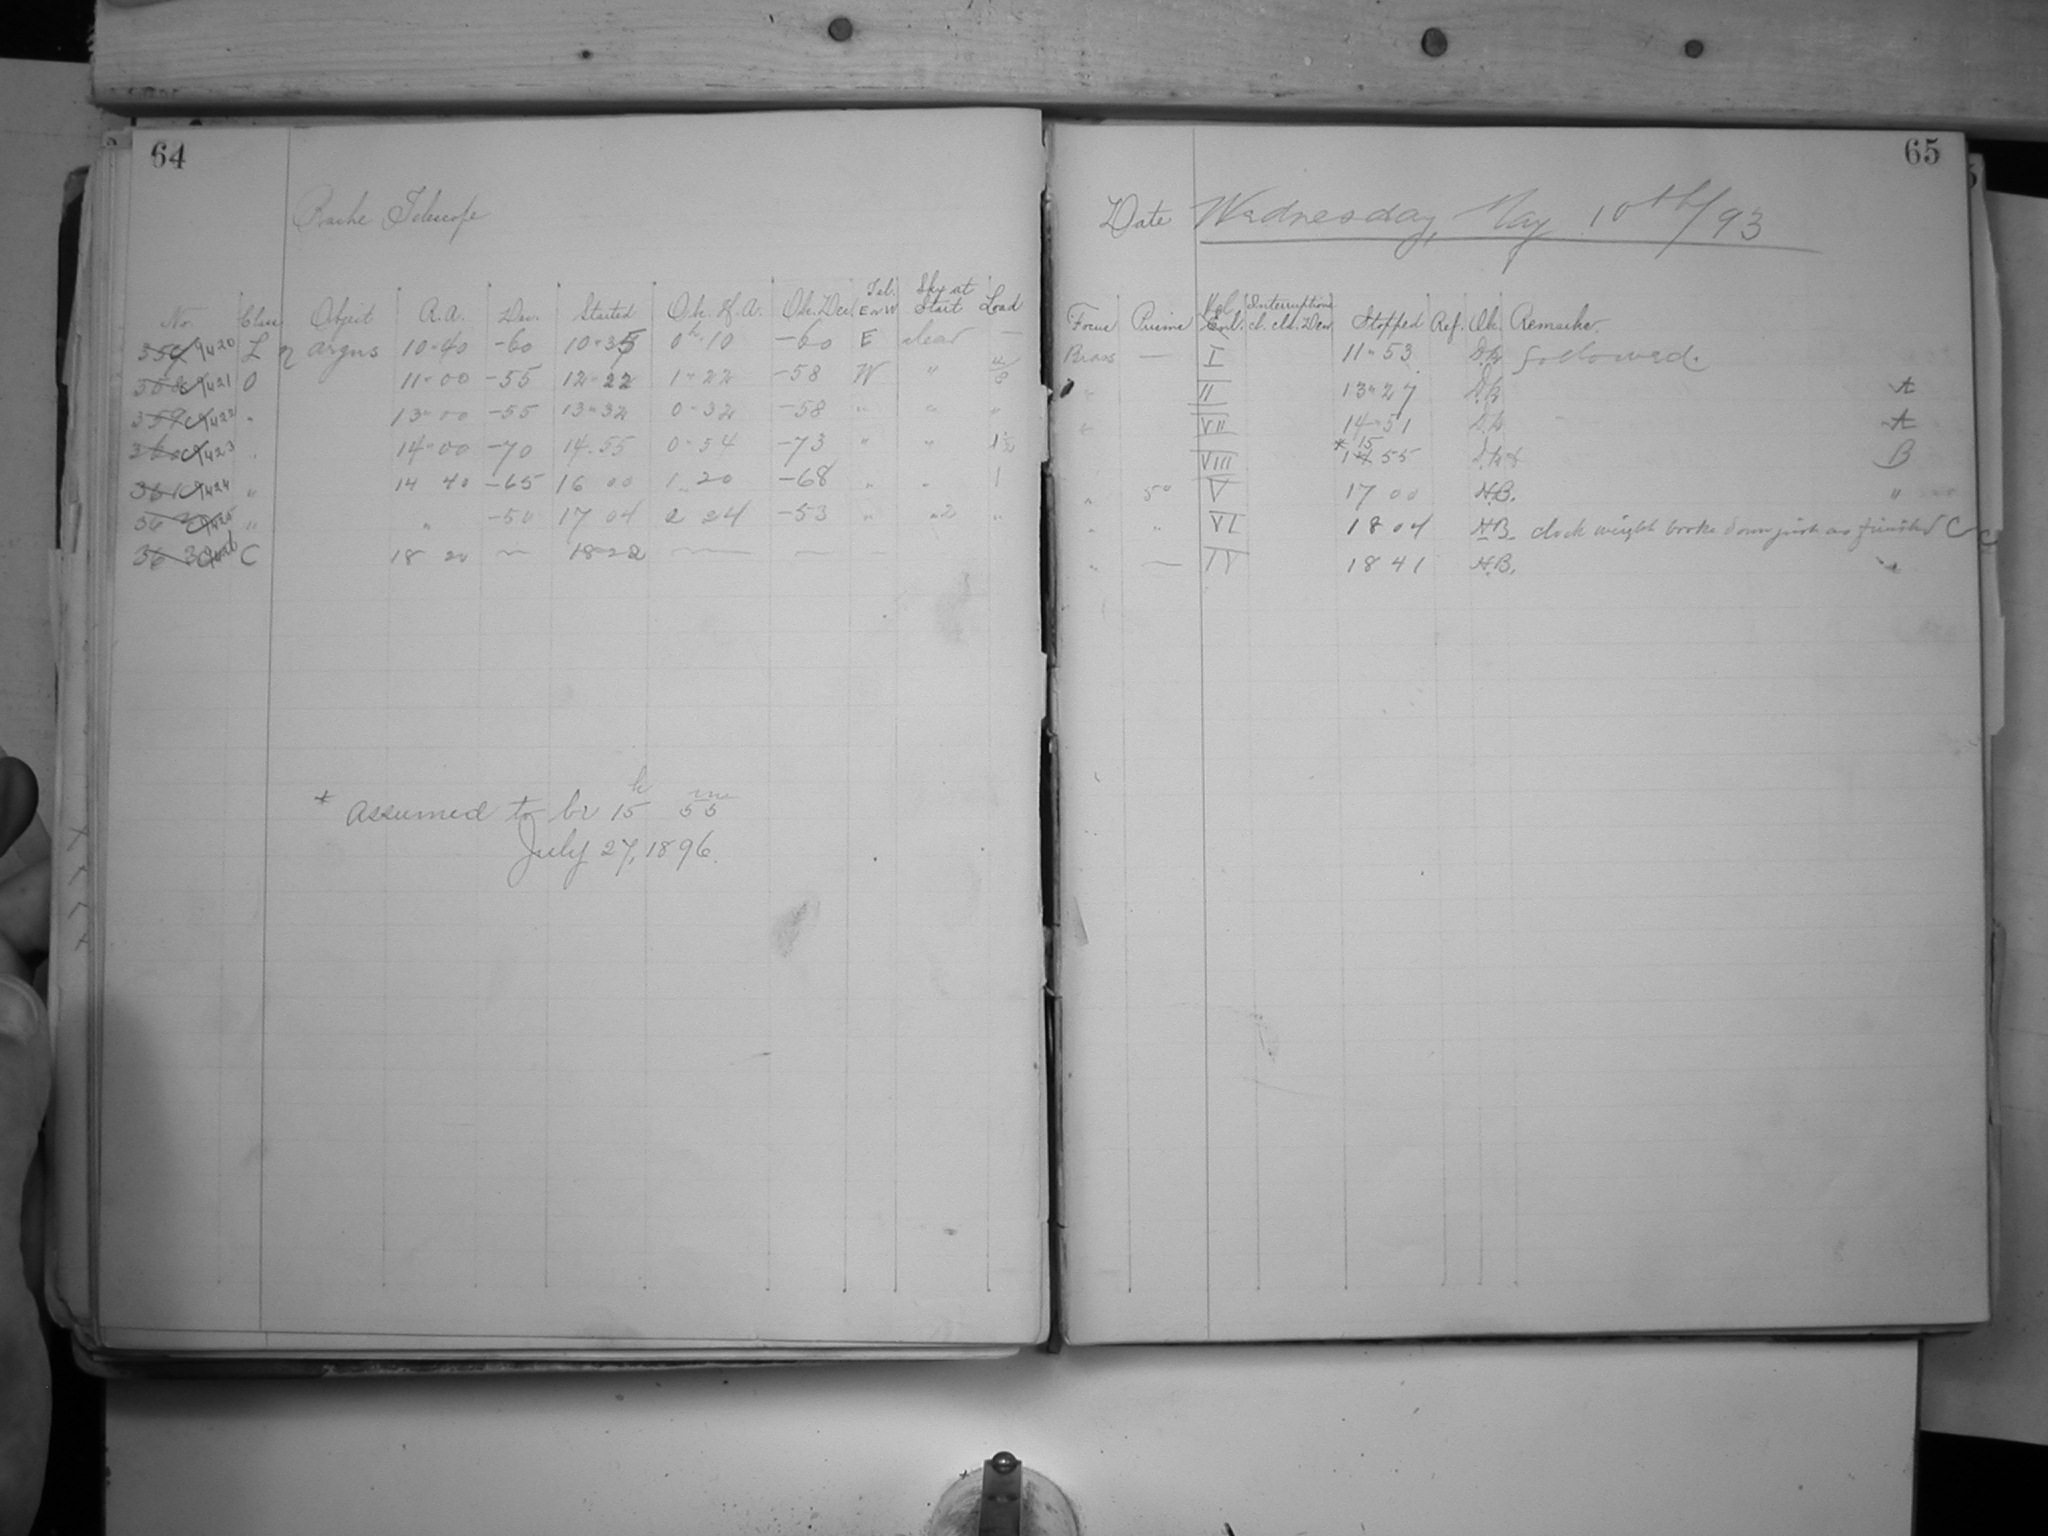 64
Bache Telescope
No. Class Object R.A. Dec. Started Ob. H.A. Ob. Dec. Tel. E or W Sky at Start Load
9420 L η Argus 10 40 -60 10 35 0h 10 -60 E clear —
9421 O 11 00 -55 12 22 1 22 -58 W "
9422 " 13 00 -55 13 32 0 32 -58 " " "
9423 " 14 00 -70 14 55 0 54 -73 " "
361 9424 " 14 40 -65 16 00 1 20 -68 " " 1
9425 " " -50 17 04 2 24 -53 " "2 "
363 C 18 20 — 18 22 — — —
* Assumed to be 15h 55m
July 27, 1896.
65
Date Wednesday, May 10th/93
Focus Prisms Stopped Ref. Ob. Remarks.
Brass — I 11 53 followed.
" II 13 27 A
" VII 14 51 A
VIII * 15 55 B
" 5° V 17 00 H.B. "
" " VI 18 04 H.B. clock weight broke down just as finished C
" — IV 18 41 H.B.